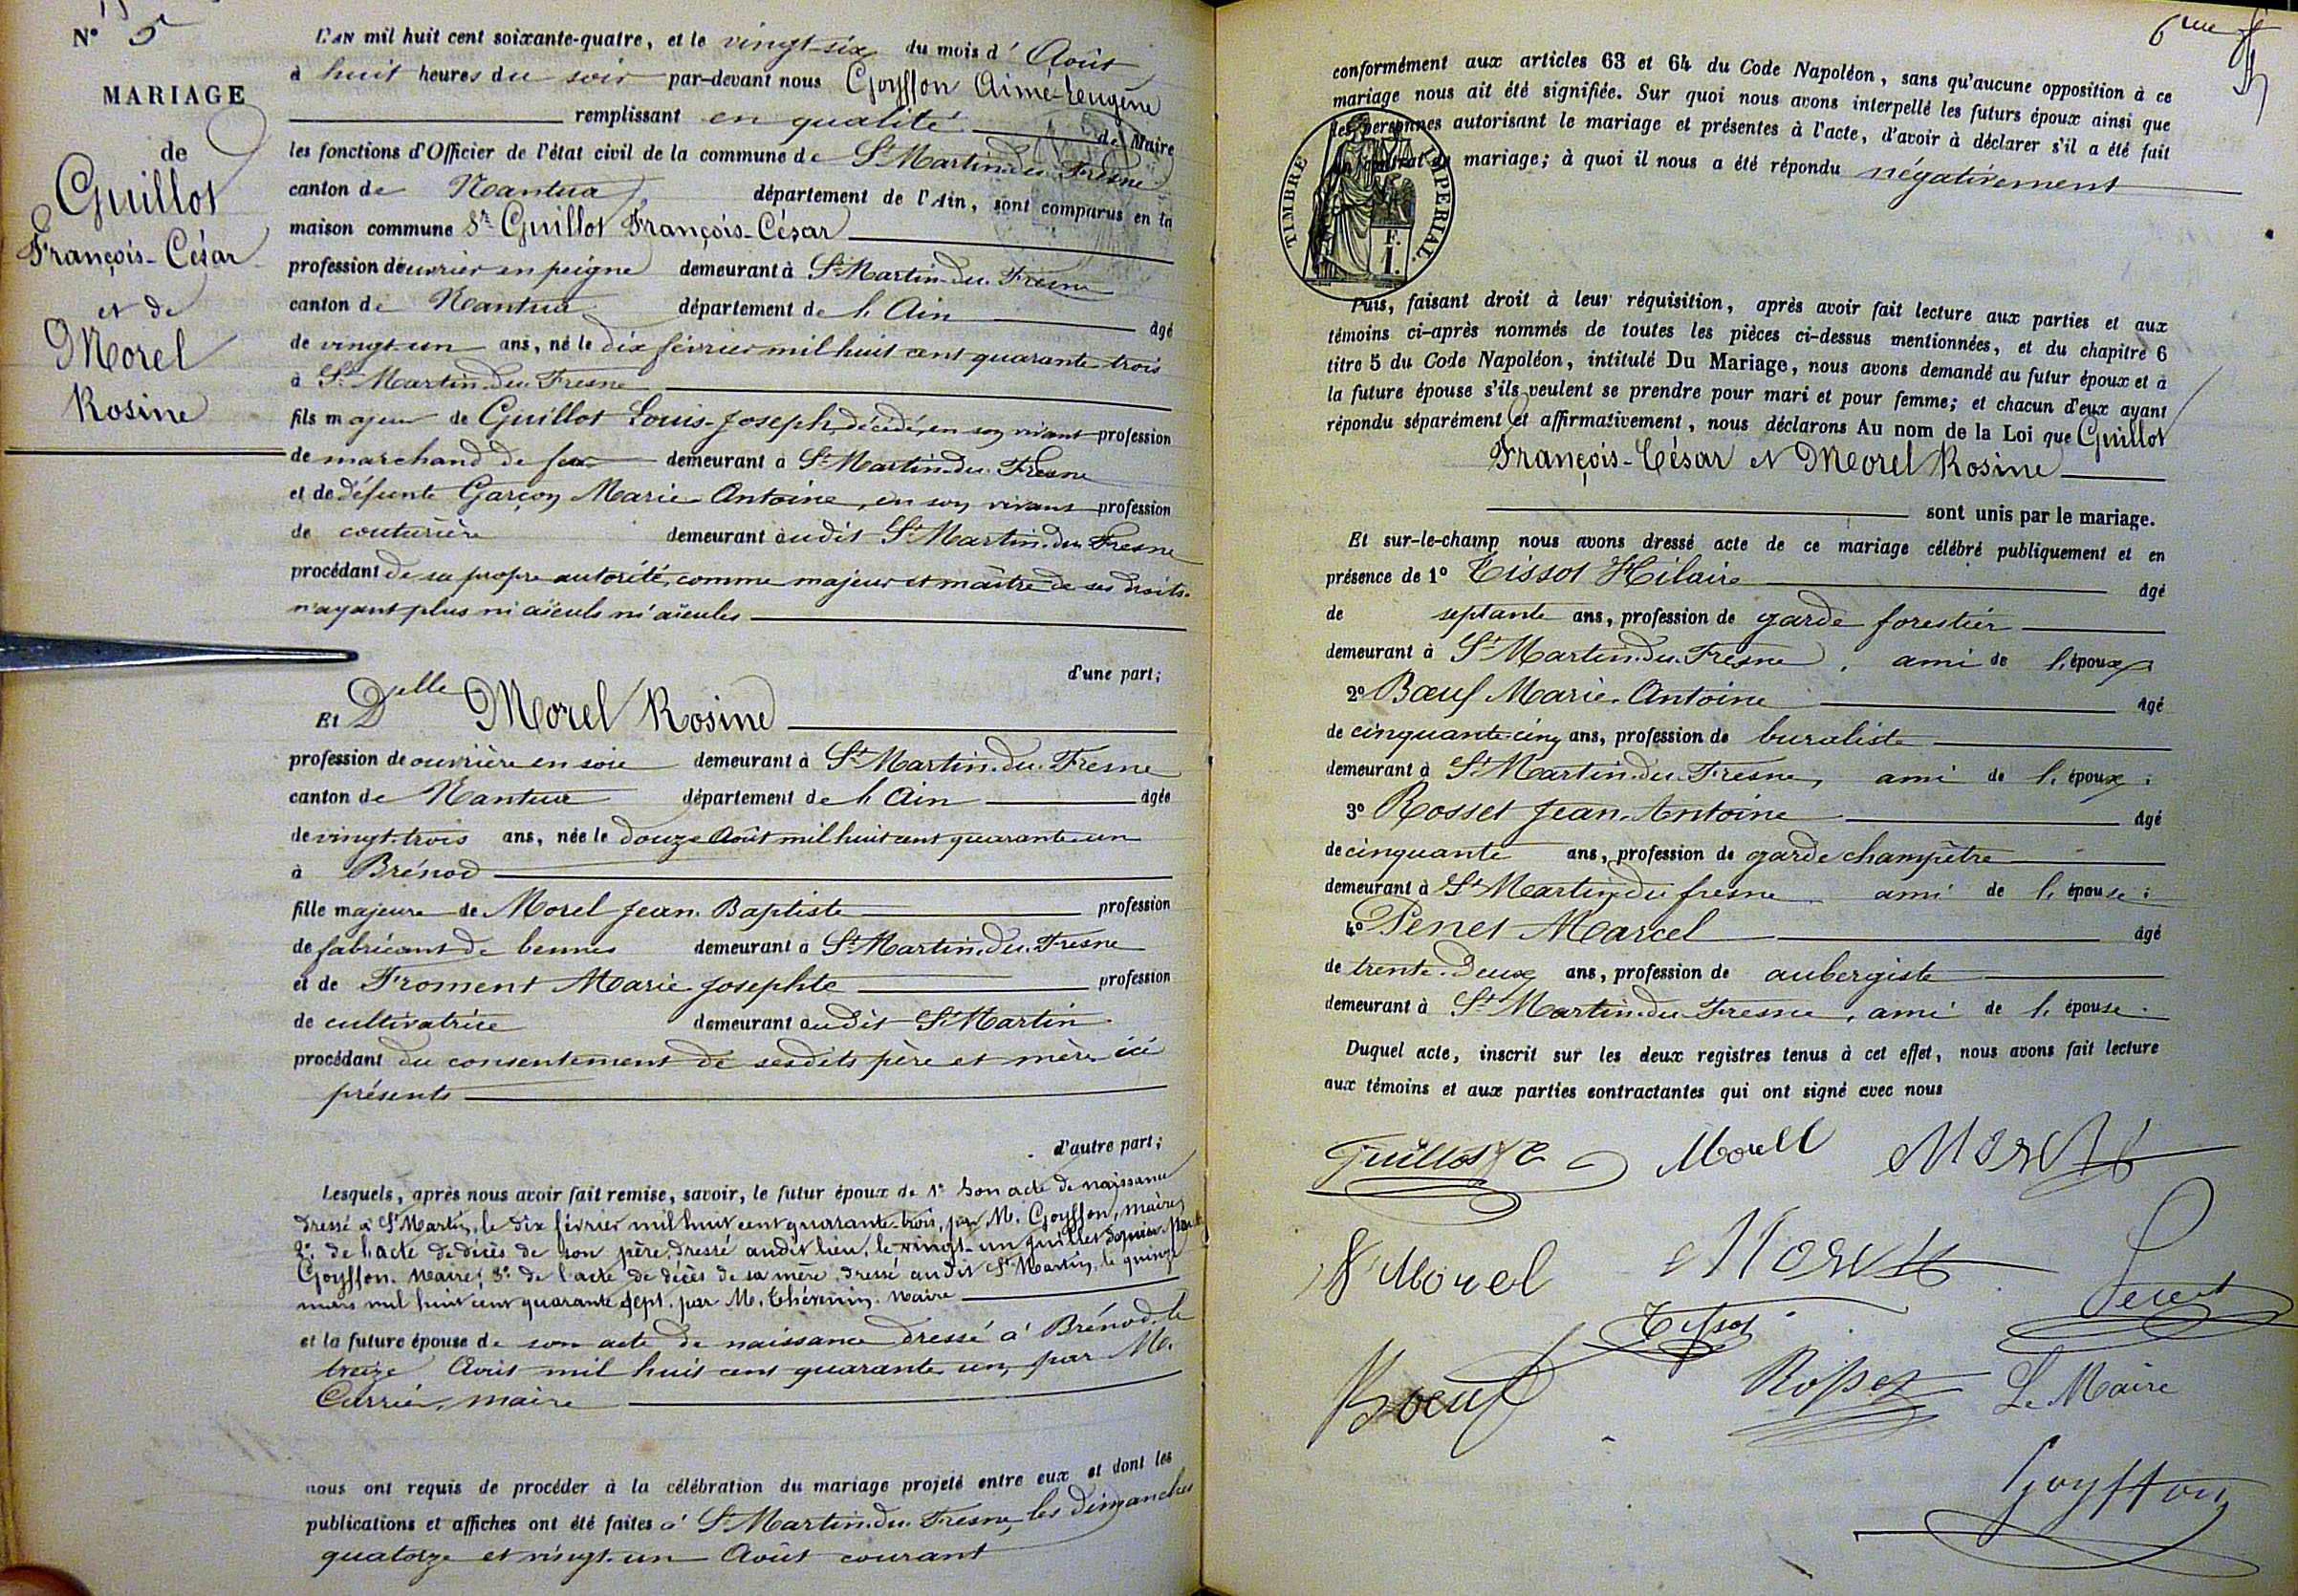 N° 5
MARIAGE
de
Guillot
François-César
et de
Morel
Rosine
L'AN mil huit cent soixante-quatre, et le vingt-six du mois d'Août
à huit heures du soir par-devant nous Goyffon Aimé-Eugène
remplissant en qualité de Maire
les fonctions d'Officier de l'état civil de la commune de St Martin-du-Fresne
canton de Nantua département de l'Ain, sont comparus en la
maison commune Sr Guillot François-César
profession de ouvrier en peigne demeurant à St Martin-du-Fresne
canton de Nantua département de l'Ain âgé
de vingt-un ans, né le dix février mil huit cent quarante-trois
à St Martin-du-Fresne
fils majeur de Guillot Louis-Joseph, décédé, en son vivant profession
de marchand de demeurant à St Martin-du-Fresne
et de défunte Garçon Marie-Antoine, en son vivant profession
de couturière demeurant audit St Martin-du-Fresne
procédant de sa propre autorité, comme majeur et maître de ses droits.
n'ayant plus ni aïeuls ni aïeules
d'une part;
Et Delle Morel Rosine
profession de ouvrière en soie demeurant à St Martin-du-Fresne
canton de Nantua département de l'Ain âgée
de vingt-trois ans, née le douze Août mil huit cent quarante-un
à Brénod
fille majeure de Morel Jean-Baptiste profession
de fabricant de bennes demeurant à St Martin-du-Fresne
et de Froment Marie Josephte profession
de cultivatrice demeurant audit St Martin
procédant du consentement de sesdits père et mère ici
présents
d'autre part;
Lesquels, après nous avoir fait remise, savoir, le futur époux de 1° Son acte de naissance
dressé à St Martin, le dix février mil huit cent quarante-trois, par M. Goyffon, maire;
2° de l'acte de décès de son père, dressé audit lieu, le vingt-un juillet dernier
Goyffon. Maire; 3° de l'acte de décès de sa mère, dressé audit St Martin, le quinze
mars mil huit cent quarante sept. par M. Thévenin. Maire
et la future épouse de son acte de naissance dressé à Brénod, le
treize Août mil huit cent quarante-un, par M.
Carrier, maire
nous ont requis de procéder à la célébration du mariage projeté entre eux et dont les
publications et affiches ont été faites à St Martin-du-Fresne, les dimanches
quatorze et vingt-un Août courant
6me
conformément aux articles 63 et 64 du Code Napoléon, sans qu'aucune opposition à ce
mariage nous ait été signifiée. Sur quoi nous avons interpellé les futurs époux ainsi que
les personnes autorisant le mariage et présentes à l'acte, d'avoir à déclarer s'il a été fait
un contrat de mariage; à quoi il nous a été répondu négativement
TIMBRE IMPERIAL.
F.
1.
Puis, faisant droit à leur réquisition, après avoir fait lecture aux parties et aux
témoins ci-après nommés de toutes les pièces ci-dessus mentionnées, et du chapitre 6
titre 5 du Code Napoléon, intitulé Du Mariage, nous avons demandé au futur époux et à
la future épouse s'ils veulent se prendre pour mari et pour femme; et chacun d'eux ayant
répondu séparément et affirmativement, nous déclarons Au nom de la Loi que Guillot
François-César et Morel Rosine
sont unis par le mariage.
Et sur-le-champ nous avons dressé acte de ce mariage célébré publiquement et en
présence de 1° Tissot Hilaire âgé
de septante ans, profession de garde forestier
demeurant à St Martin-du-Fresne, ami de l'époux.
2° Bœuf Marie-Antoine âgé
de cinquante-cinq ans, profession de buraliste
demeurant à St Martin-du-Fresne, ami de l'époux;
3° Rosset Jean-Antoine âgé
de cinquante ans, profession de garde champêtre
demeurant à St Martin du fresne ami de l'épouse;
4° Penet Marcel âgé
de trente-deux ans, profession de aubergiste
demeurant à St Martin-du-Fresne, ami de l'épouse.
Duquel acte, inscrit sur les deux registres tenus à cet effet, nous avons fait lecture
aux témoins et aux parties contractantes qui ont signé avec nous
Guillot Morell Morel
Morel Morel Penet
Tissot
Boeuf Rosset Le Maire
Goyffon